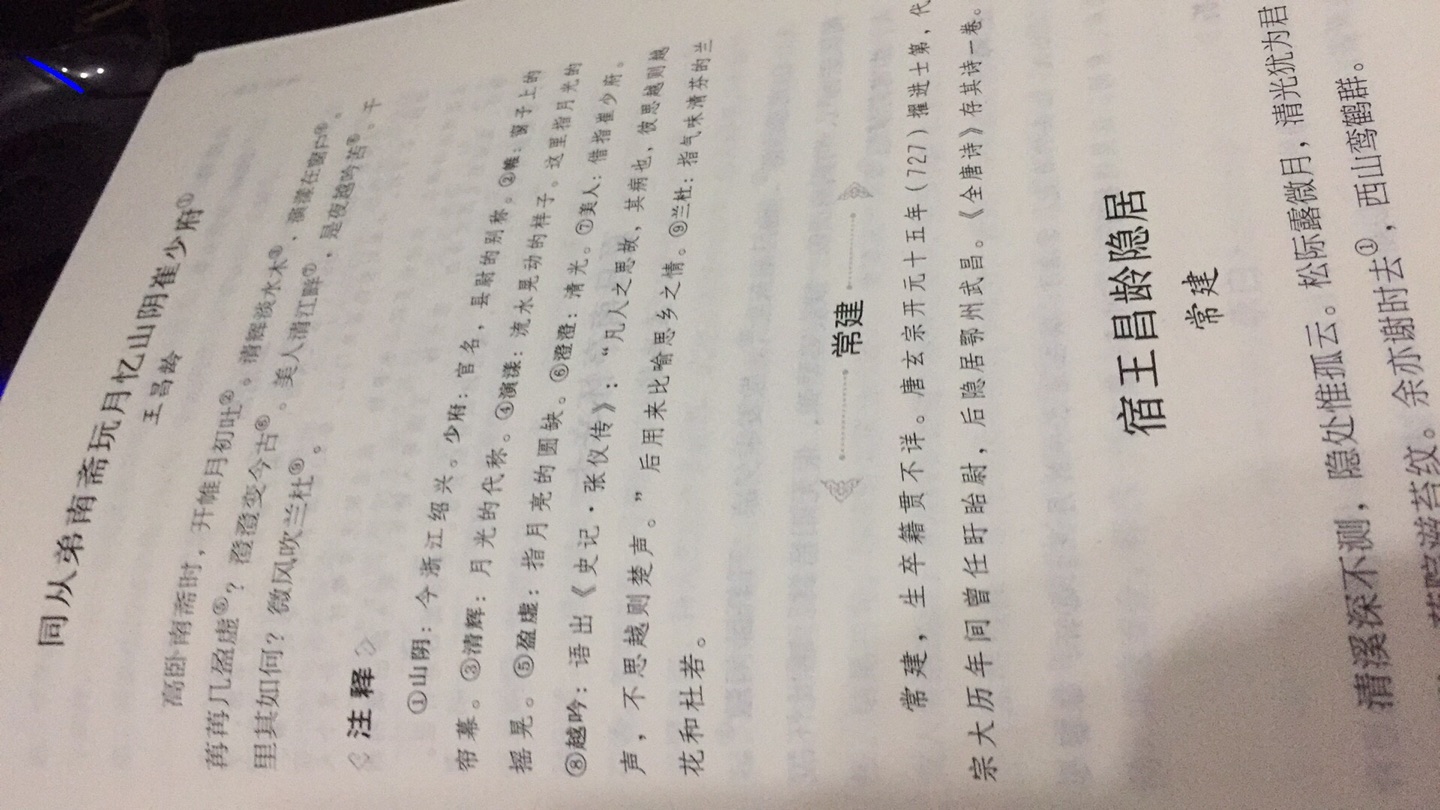 同从弟南斋玩月忆山阴崔少府①
王昌龄
高卧南斋时，开帷月初吐②。清辉淡水木③，演漾在窗户④。
苒苒几盈虚⑤？澄澄变今古⑥。美人清江畔⑦，是夜越吟苦⑧。千
里其如何？微风吹兰杜⑨。
注释
①山阴：今浙江绍兴。少府：官名，县尉的别称。②帷：窗子上的
帘幕。③清辉：月光的代称。④演漾：流水晃动的样子。这里指月光的
摇晃。⑤盈虚：指月亮的圆缺。⑥澄澄：清光。⑦美人：借指崔少府。
⑧越吟：语出《史记·张仪传》：“凡人之思故，其病也，彼思越则越
声，不思越则楚声。”后用来比喻思乡之情。⑨兰杜：指气味清芬的兰
花和杜若。
常建
常建，生卒籍贯不详。唐玄宗开元十五年（727）擢进士第，代
宗大历年间曾任盱眙尉，后隐居鄂州武昌。《全唐诗》存其诗一卷。
宿王昌龄隐居
常建
清溪深不测，隐处惟孤云。松际露微月，清光犹为君
滋苔纹。余亦谢时去①，西山鸾鹤群。